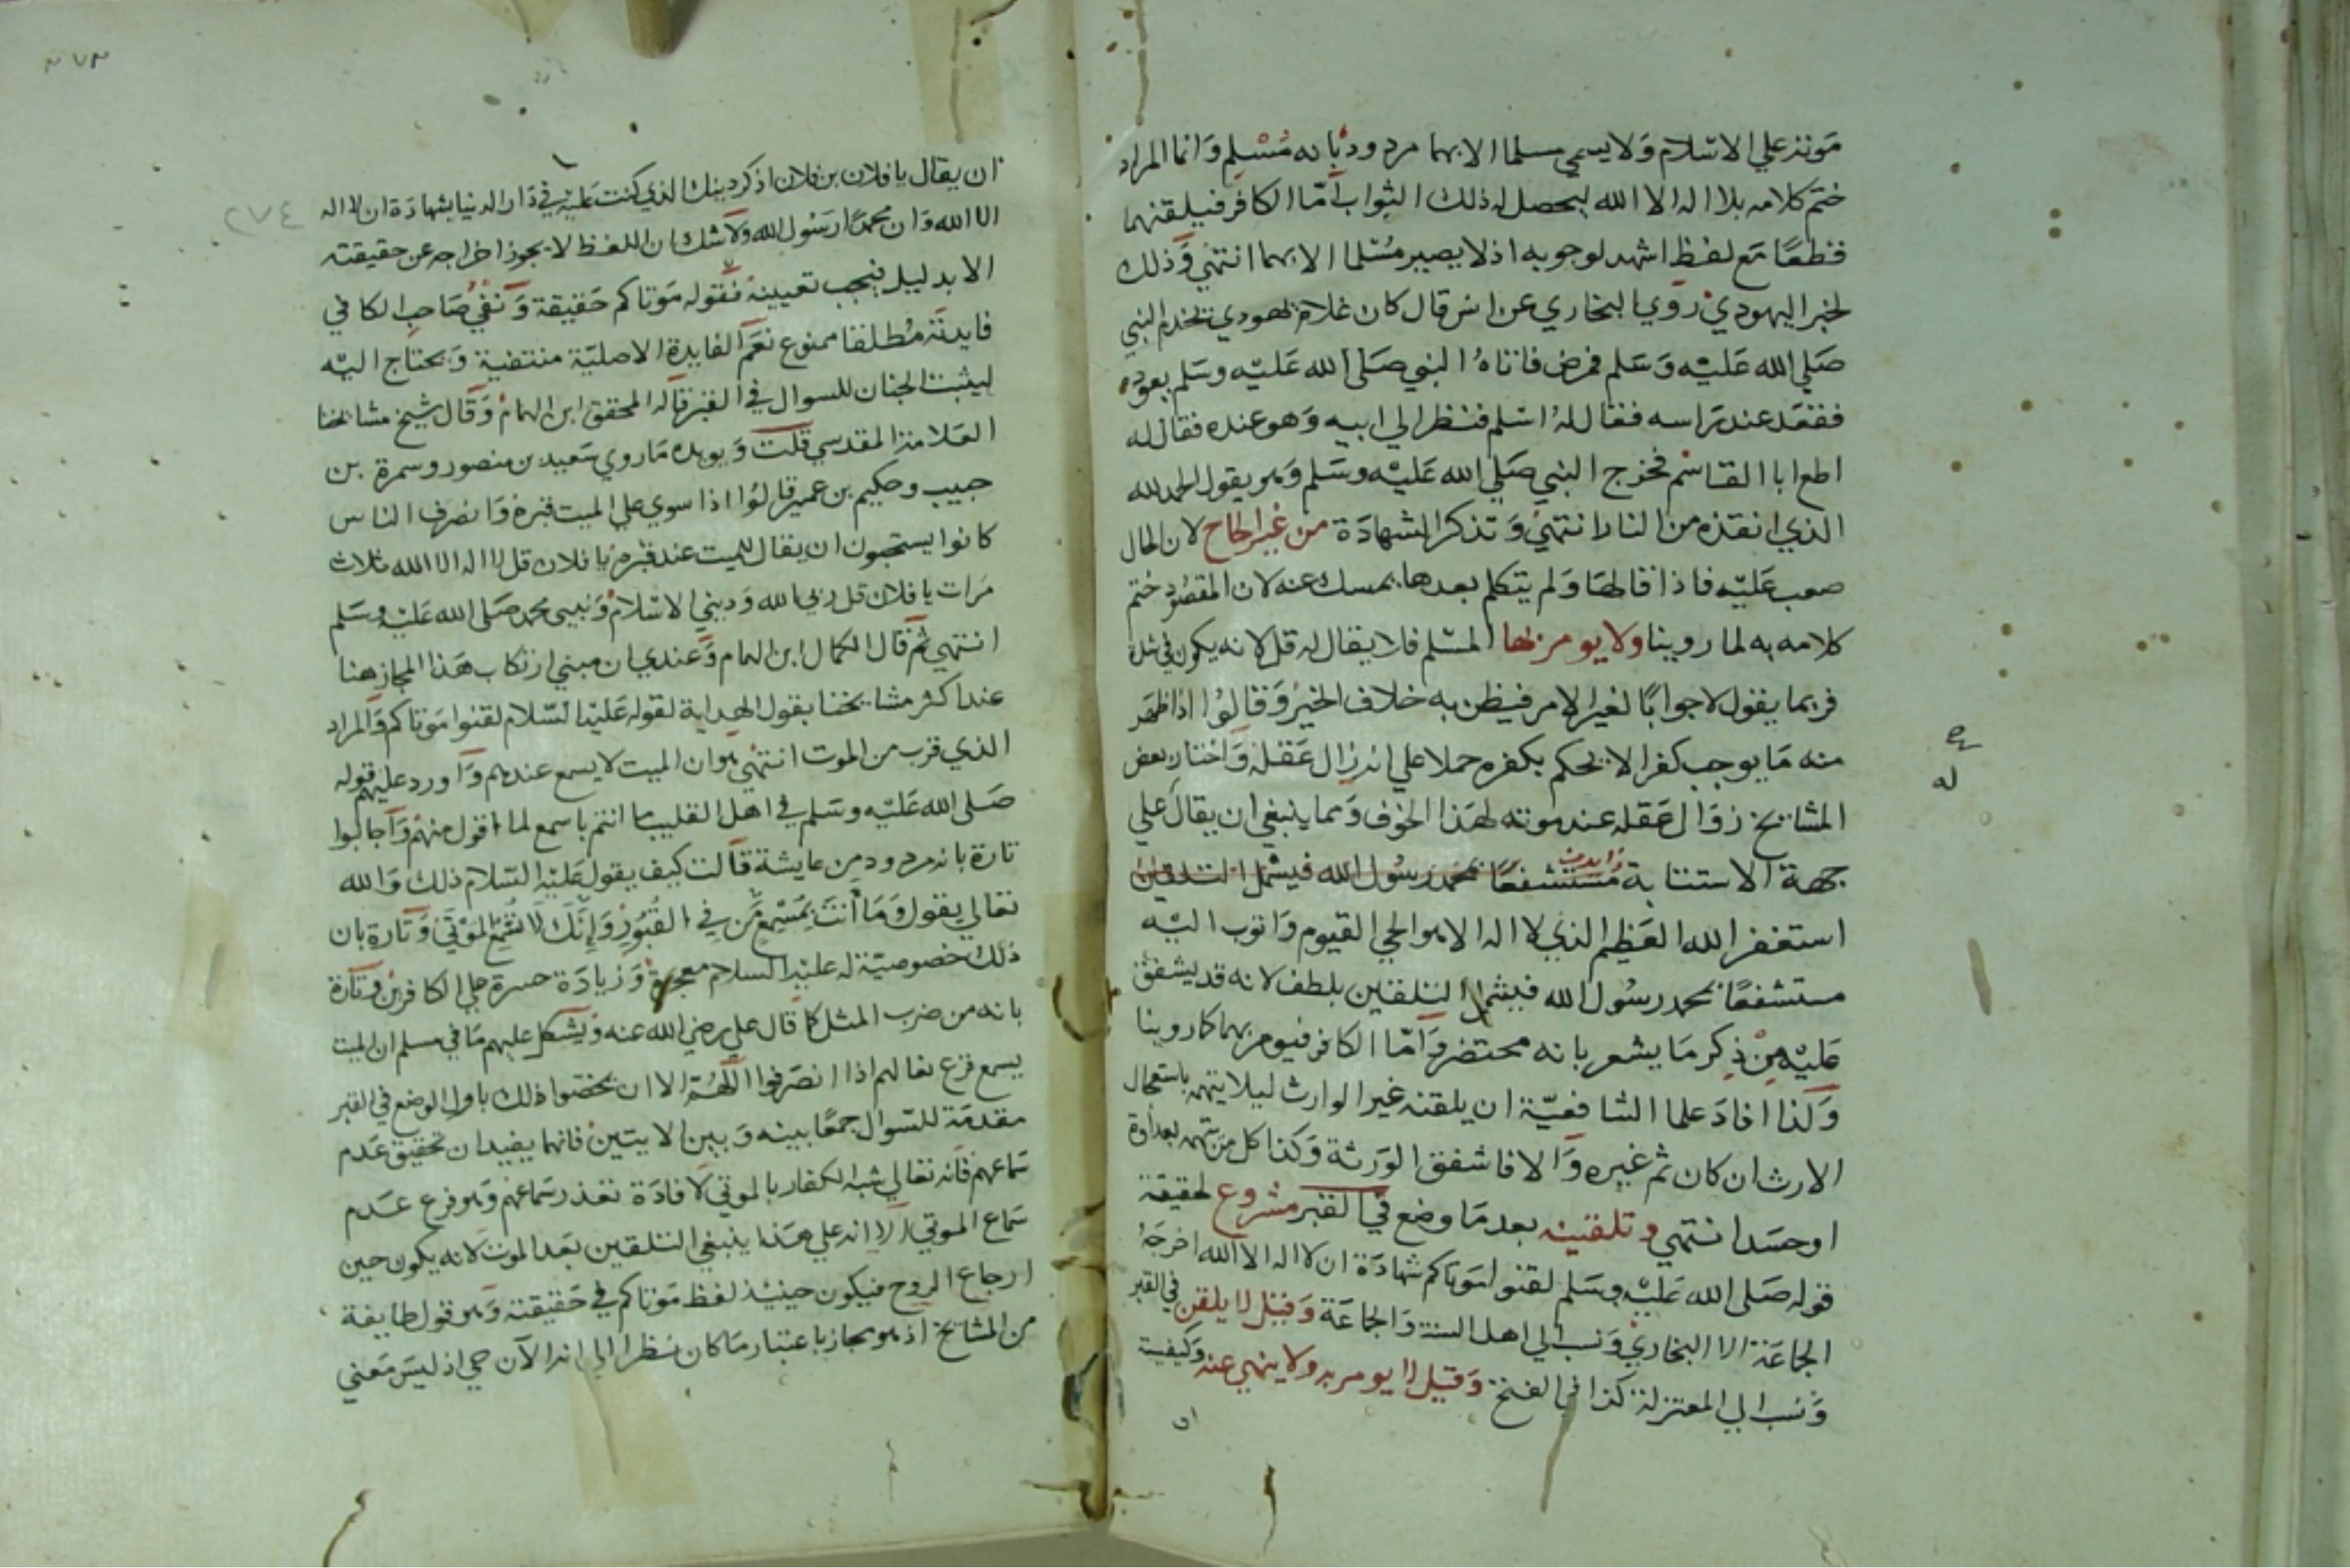 موته علي الاسلام ولا يسمي مسلما الا بهما مردود بانه مسلم وانما المراد
ختم كلامه بلا اله الا الله ليحصل له ذلك الثواب أمّا الكافر فيلقنهما
قطعًا مع لفظ اشهد لوجوبه اذ لا يصير مُسْلما الا بهما انتهي وذلك
لخبر اليهودي روي البخاري عن انس قال كان غلام يهودي يخدم النبي
صَلي الله عَليْه وَسَلم فمرض فاتاه النبي صَلي الله عَليْه وسَلم يعوده
فقعَد عند رَاسه فقال لهُ اسْلم فنظر الي ابيه وَهو عنده فقال له
اطع ابا القاسم فخرج النبي صَلي الله عَليْه وسَلم وَهو يقول الحمد لله
الذي انقذه من النار انتهي وَتذكر الشهادَة من غير الحاح لان الحال
صعب عَليْه فاذا قالهَا وَلم يتكلم بعدها يمسك عنه لان المقصُود ختم
كلامه به لما روينا ولا يومر بها المسْلم فلا يقال له قل لانه يكون في شدة
فربما يقول لا جوابًا لغير الامر فيظن به خلاف الخير وَقالوُا اذا ظهَر
منه مَا يوجب كفرا لا يحكم بكفره حملا علي انه زال عَقله وَاختار بعض
المشايخ زوَال عَقله عند موته لهَذا الخوف وَمما ينبغي ان يقال علي
جهة الاستتابة مُسْتشفعًا بمحمد رسُول الله فيشمل التلقين
استغفر الله العَظيم الذي لا اله الا هو الحي القيوم وَاتوب اليْه
مستشفعًا بمحمد رسُول الله فيشمل التلقين بلطف لانه قد يشفق
عَليْه مِنْ ذِكر مَا يشعر بانه محتضر وَامّا الكافر فيومر بهما كما روينا
وَكذا افادَ علما الشافعيّة ان يلقنه غير الوارث ليلا يتهم باستعجال
الارث ان كان ثم غيره وَالا فاشفق الوَرثة وَكذا كل من يتهم بعداوة
او حسَد انتهي وتلقينه بعد مَا وضع في القبر مشروع لحقيقة
قوله صَلي الله عَليْه وسَلم لقنوا مَوتاكم شهادَة ان لا اله الا الله اخرجَهُ
الجماعَة الا البخاري وَنسب الي اهل السنة وَالجماعَة وَقيل لا يلقن في القبر
وَنسب الي المعتزلة كذا في الفتح وَقيل لا يومر به ولا ينهي عنه وَكيفيته
ان
له
ان يقال يا فلان بن فلان اذكر دينك الذي كنت عَليْه في دَار الدنيا بشهادَة ان لا اله
الا الله وَان محمدًا رَسُول الله وَلا شك ان اللفظ لا يجوز اخراجه عن حقيقته
الا بدليل فيجب تعيينه فقوله مَوتاكم حَقيقة وَنفي صَاحب الكافي
فايدته مُطلقا ممنوع نعَم الفايدة الاصليّة منتفية وَيحتاج اليْه
ليثبت الجنان للسوال في القبر قاله المحقق ابن الهمام وَقال شيخ مشايخنا
العَلامة المقدسي قلت وَيويده مَا روي سَعيد بن منصور وسمرة بن
حبيب وحكيم بن عمير قالوُا اذا سوي علي الميت قبره وَانصرف الناس
كانوا يستحبون ان يقال للميت عند قبره يا فلان قل لا اله الا الله ثلاث
مَرات يا فلان قل ربي الله وَديني الاسْلام وَنبيي محمد صَلي الله عَليْه وسَلم
انتهي ثم قال الكمال ابن الهمام وَعندي ان مبني ارتكاب هَذا المجاز هنا
عند اكثر مشايخنا بقول الهداية لقوله عَليْه السّلام لقنوا مَوتاكم وَالمراد
الذي قرب من الموت انتهي هو ان الميت لا يسمع عندهم وَاورد عليهم قوله
صَلي الله عَليْه وسَلم في اهل القليب ما انتم باسمع لما اقول منهم وَاجابوا
تارة بانه مردود من عايشة قالت كيف يقول عَليْه السّلام ذلك وَالله
تعالي يقول وَمَا أنتَ بِمُسْمِعٍ مَّن فِي القُبُورِ وَإِنَّكَ لَا تُسْمِعُ المَوْتَى وَتارة بان
ذلك خصوصيّة له عليْه السلام معجزة وَزيادَة حسرة علي الكافرين وتارة
بانه من ضرب المثل كما قال علي رضي الله عنه وَيشكل عليهم مَا في مسلم ان الميت
يسمع قرع نعالهم اذا انصَرفوا اللّهُمّ الا ان يخصّوا ذلك باول الوضع في القبر
مقدمَة للسّوال جمعًا بينه وَبين الايتين فانهما يفيدان تحقيق عَدم
سَماعهم فانه تعالي شبه الكفار بالموتي لافادَة تعذر سَماعهم وَهو فرع عَدم
سَماع الموتي الا انه علي هَذا ينبغي التلقين بعَد الموت لانه يكون حين
ارجاع الروح فيكون حينيْذ لفظ مَوتاكم في حَقيقته وَهو قول طايفة
من المشايخ اذ هو مجاز باعتبار مَا كان نظرا الي انه الآن حي اذ ليسَ مَعني
٢٧٤